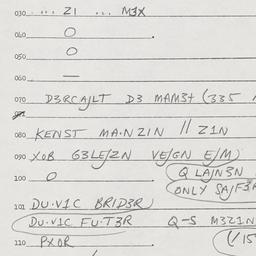 030 .... ZI ... MEX
040 O
050 O
060 —
070 D3RCAJLT D3 MAM3t (335
080 KENST MA·NZIN // Z1N
090 XOB G3LE/ZN VE/GN E/M)
100 O (Q LA/N3N
ONLY SA/F3R
101 DU·VIC BRID3R)
DU·VIC FU·T3R Q-S M3Z1N
110 PXOR (1/15